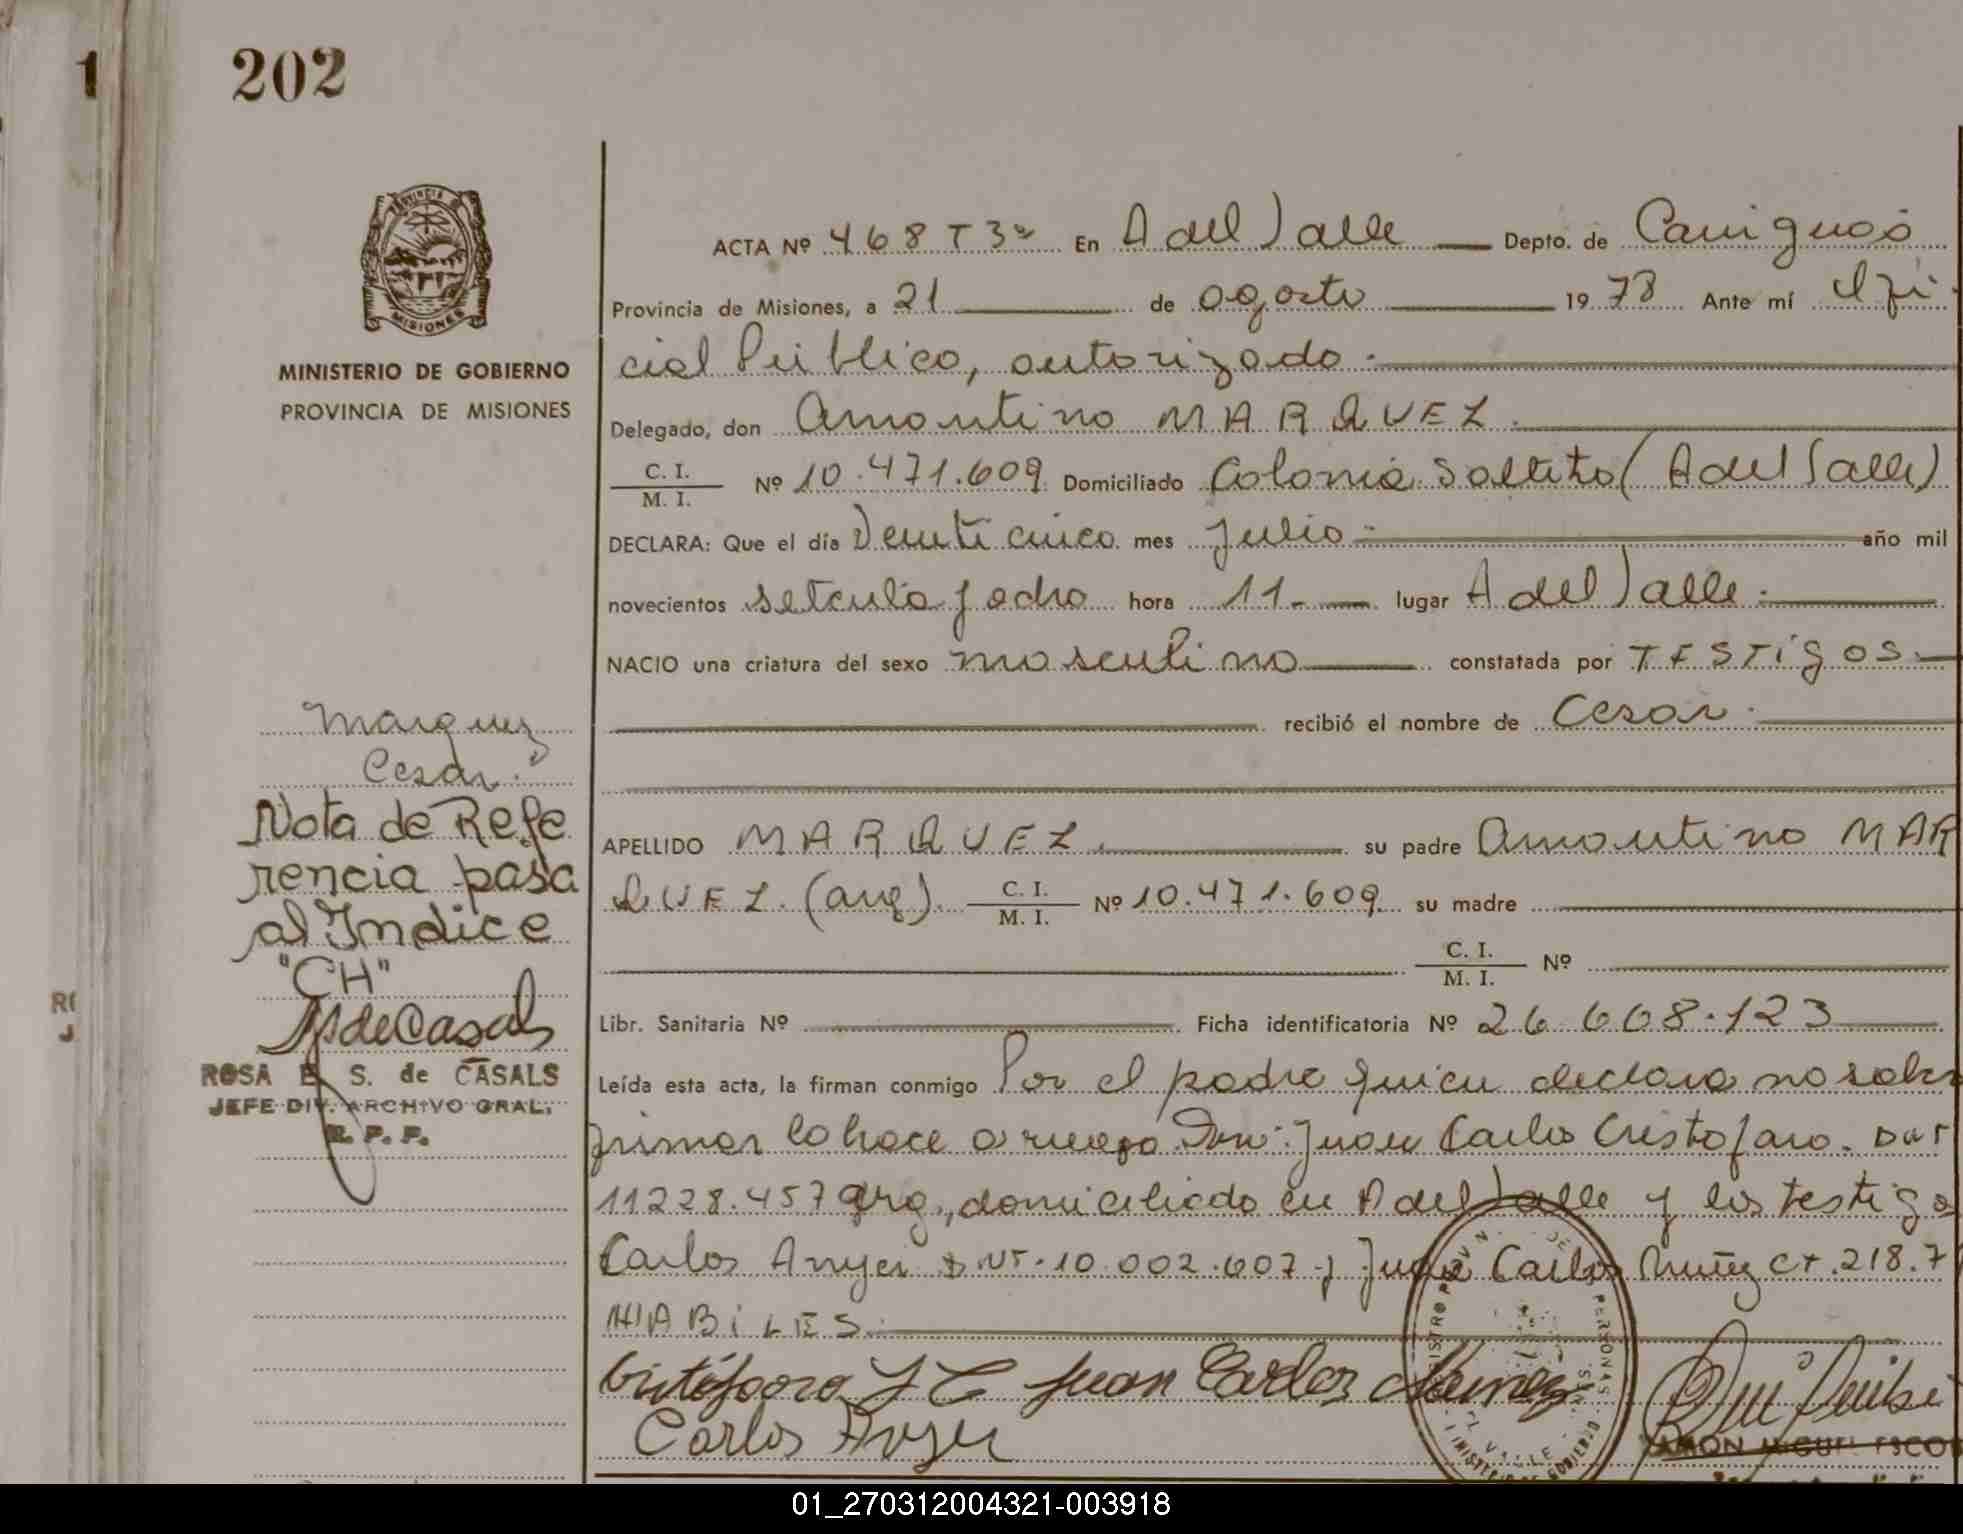 1
202
PROVINCIA DE
MISIONES
MINISTERIO DE GOBIERNO
PROVINCIA DE MISIONES
ACTA Nº 468 T 3º En A del Valle Depto. de Cainguás
Provincia de Misiones, a 21 de agosto 1978 Ante mí Ofi-
cial Público, autorizado.
Delegado, don Amantino MARQUEZ.
C. I.
M. I.
Nº 10.471.609 Domiciliado Colonia Saltito (A del Valle)
DECLARA: Que el día Veinticinco mes Julio año mil
novecientos setenta y ocho hora 11- lugar A del Valle.
NACIO una criatura del sexo masculino constatada por TESTigos.
recibió el nombre de Cesar.
Marquez
Cesar.
Nota de Refe
rencia pasa
al Indice
"CH"
ROSA E. S. de CASALS
JEFE DIV. ARCHIVO GRAL.
R. P. P.
APELLIDO MARQUEZ. su padre Amantino MAR
QUEZ. (arg). C. I.
M. I. Nº 10.471.609 su madre
C. I.
M. I. Nº
Libr. Sanitaria Nº Ficha identificatoria Nº 26 608.123
Leída esta acta, la firman conmigo Por el padre quien declara no saber
firmar lo hace a ruego Don: Juan Carlos Cristofaro. DNI
11228.457 arg., domiciliado en A del Valle y los testigos
Carlos DNI.10.002.607 y Juan Carlos Muñez CI.218.7
HABiLES.
Juan Carlos Nuñez
Carlos
RAMON MIGUEL ESCO
01_270312004321-003918